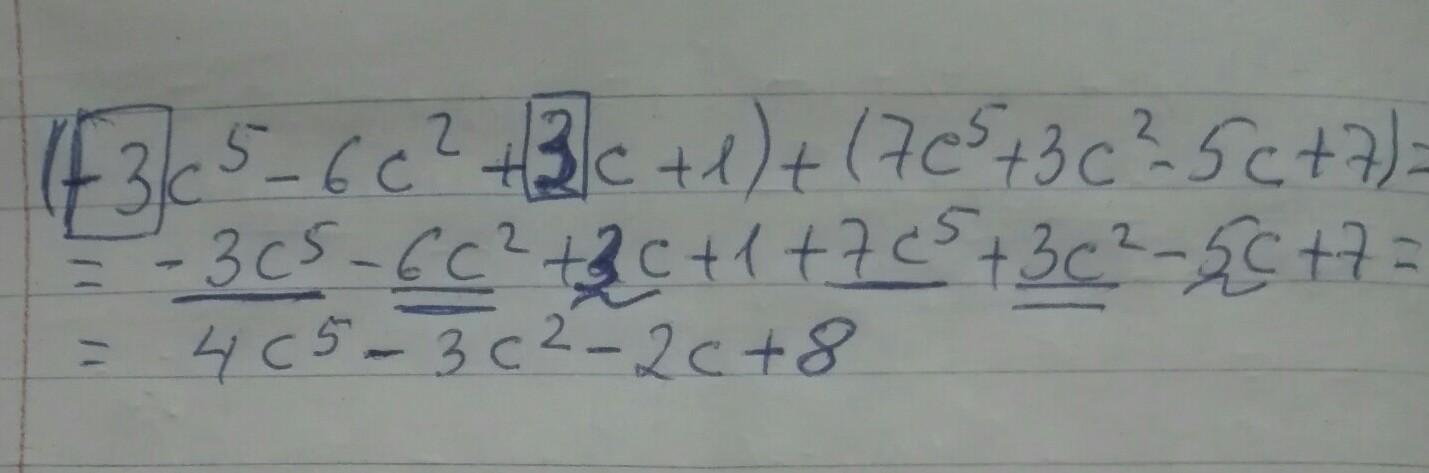 (-3c⁵ - 6c² + 3c + 1) + (7c⁵ + 3c² - 5c + 7) =
= -3c⁵ - 6c² + 3c + 1 + 7c⁵ + 3c² - 5c + 7 =
= 4c⁵ - 3c² - 2c + 8